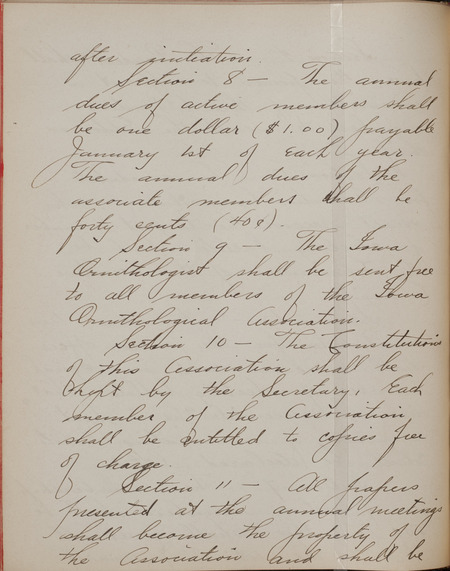 after initiation.
Section 8 — The annual
dues of active members shall
be one dollar ($1.00) payable
January 1st of each year.
The annual dues of the
associate members shall be
forty cents (40¢).
Section 9 — The Iowa
Ornithologist shall be sent free
to all members of the Iowa
Ornithological Association.
Section 10 — The Constitution
of this Association shall be
kept by the Secretary, Each
member of the Association
shall be entitled to copies free
of charge.
Section 11 — All papers
presented at the annual meetings
shall become the property of
the Association and shall be